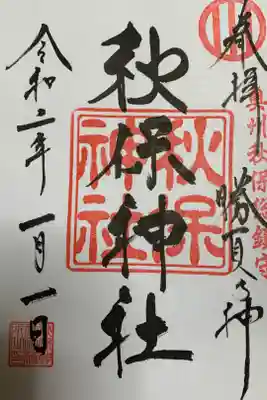 奉拝
勝負の神
奥州秋保総鎮守
秋保神社
秋保神社
令和二年一月一日